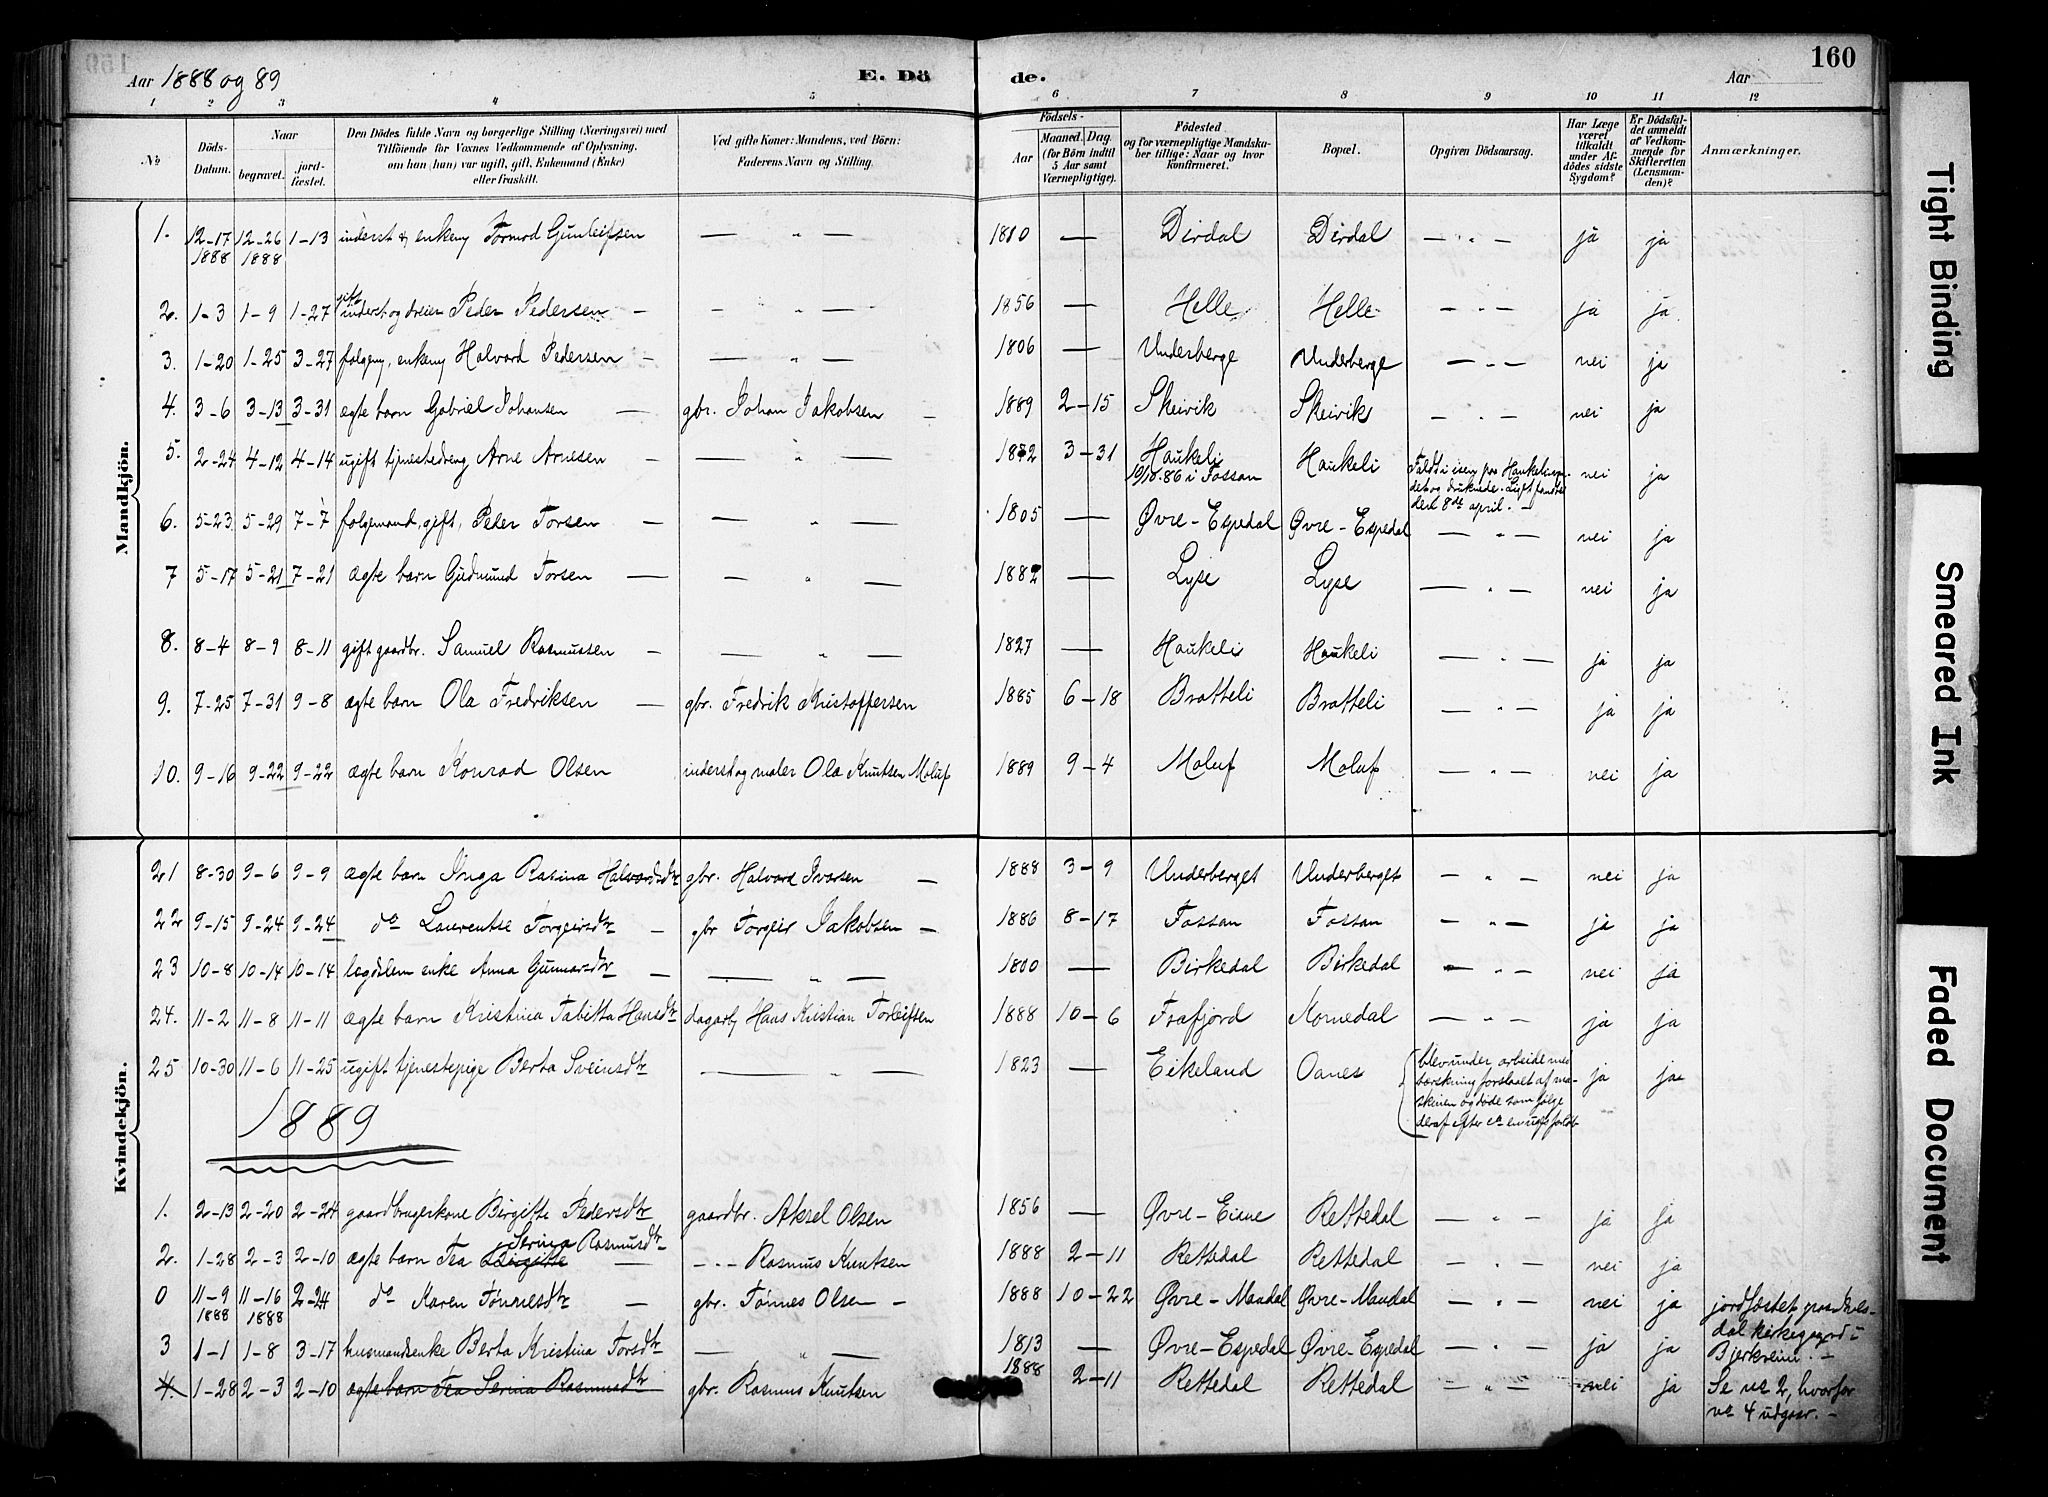 160
Aar 1888 og 89 E. Döde. Aar
1 2 3 4 5 6 7 8 9 10 11 12
No
Döds-Datum.
Naar
begravet.
jord-fæstet.
Den Dödes fulde Navn og borgerlige Stilling (Næringsvei) med
Tilföiende for Voxnes Vedkommende af Oplysning,
om han (hun) var ugift, gift, Enkemand (Enke)
eller fraskilt.
Ved gifte Koner: Mandens, ved Börn:
Faderens Navn og Stilling.
Födsels-
Aar
Maaned. Dag.
(for Börn indtil
5 Aar samt
Værnepligtige).
Födested
og for værnepligtige Mandska-
ber tillige: Naar og hvor
konfirmeret.
Bopæl.
Opgiven Dödsaarsag.
Har Læge
været
tilkaldt
under Af-
dödes sidste
Sygdom?
Er Dödsfal-
det anmeldt
af Vedkom-
mende for
Skifteretten
(Lensman-
den)?
Anmærkninger.
Mandkjön.
1. 12-17 1888 12-26 1888 1-13 inderst & enkem Tormod Gunleifsen — " — 1810 — Dirdal Dirdal — " — ja ja
2. 1-3 1-9 1-27 gift inderst og dreier Peder Pedersen — - " — 1856 — Helle Helle — " — ja ja
3. 1-20 1-25 3-27 folgem, enkem Halvard Pedersen — — " — 1806 — Underberge Underberge — " — nei ja
4. 3-6 3-13 3-31 ægte barn Gabriel Johansen — gbr. Johan Jakobsen — 1889 2-15 Skeivik Skeivik - " — nei ja
5. 2-24 4-12 4-14 ugift tjenestedreng Arne Arnesen — — " — 1872 3-31 Haukeli 10/10.86 i Fossan Haukeli Faldt i isen paa Haukeli
det og druknede. Liget
den 8de april. — nei ja
6. 5-23 5-29 7-7 folgemand, gift, Peder Torsen — — " — 1805 — Øvre-Espedal Øvre-Espedal — " — nei ja
7 5-17 5-21 7-21 ægte barn Gudmund Torsen — — " — 1882 — Lyse Lyse — " — nei ja
8. 8-4 8-9 8-11 gift gaardbr. Samuel Rasmussen — — " — 1827 — Haukeli Haukeli — " — ja ja
9. 7-25 7-31 9-8 ægte barn Ola Fredriksen — gbr. Fredrik Kristoffersen 1885 6-18 Bratteli Bratteli — " — ja ja
10. 9-16 9-22 9-22 ægte barn Konrad Olsen inderst og maler Ola Knutsen Moluf 1889 9-4 Moluf Moluf — " — nei ja
Kvindekjön.
21 8-30 9-6 9-9 ægte barn Inga Rasina Halvardsdtr gbr. Halvard Ivarsen — 1888 3-9 Underberget Underberget — " — nei ja
22 9-15 9-24 9-24 do Laurentse Torgeirsdtr — gbr Torgeir Jakobsen — 1886 8-17 Fossan Fossan — " — ja ja
23 10-8 10-14 10-14 lægdslem enke Anna Gunnarsdtr — — " — 1800 — Birkedal Birkedal — " — nei ja
24. 11-2 11-8 11-11 ægte barn Kristina Tabitta Hansdtr dagarb Hans Kristian Torleifsen 1888 10-6 Frafjord Kornedal — " — ja ja
25 10-30 11-6 11-25 ugift tjenestepige Berta Sveinsdtr — " — 1823 — Eikeland Oanes blev under arbeide med
tærskning forslaaet af ma-
skinen og døde som følge
deraf efter en uges forløb ja ja
1889
1. 2-13 2-20 2-24 gaardbrugerkone Birgitte Pedersdtr gaardbr. Aksel Olsen 1856 — Øvre-Eiane Rettedal — " — ja ja
2. 1-28 2-3 2-10 ægte barn Tea Birgitte Serina Rasmusdtr — -"- Rasmus Knutsen 1888 2-11 Rettedal Rettedal — " — nei ja
0 11-9 1888 11-16 1888 2-24 do Karen Tønnesdtr — gbr. Tönnes Olsen — 1888 10-22 Øvre-Maudal Øvre-Maudal — " — nei ja jordfæstet paa
dal kirkegaard i
Bjerkreim. —
3 1-1 1-8 3-17 husmandsenke Berta Kristina Torsdtr — " — 1813 — Øvre-Espedal Øvre-Espedal — " — ja ja
4. 1-28 2-3 2-10 ægte barn Tea Serina Rasmusdtr gbr. Rasmus Knutsen 1888 2-11 Rettedal Rettedal — " — nei ja Se no 2, hvorfor
no 4 udgaar. —
Tight Binding
Smeared Ink
Faded Document